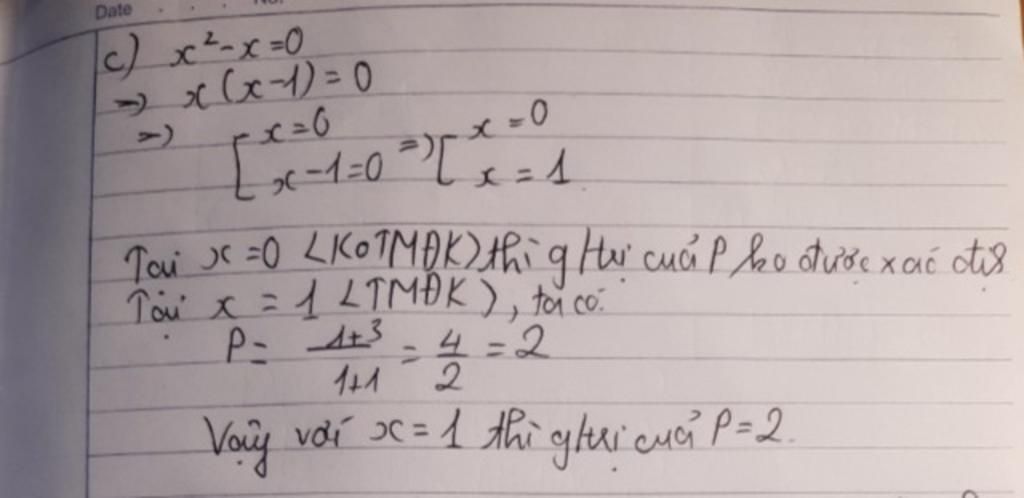 Date . . . No.
c) x² - x = 0
=> x (x - 1) = 0
=> [ x = 0 => [ x = 0
x - 1 = 0 x = 1
Tại x = 0 <KoTMĐK> thì g/trị của P ko được xác địh
Tại x = 1 <TMĐK>, ta có:
P = \frac{1+3}{1+1} = \frac{4}{2} = 2
Vậy với x = 1 thì g/trị của P = 2.